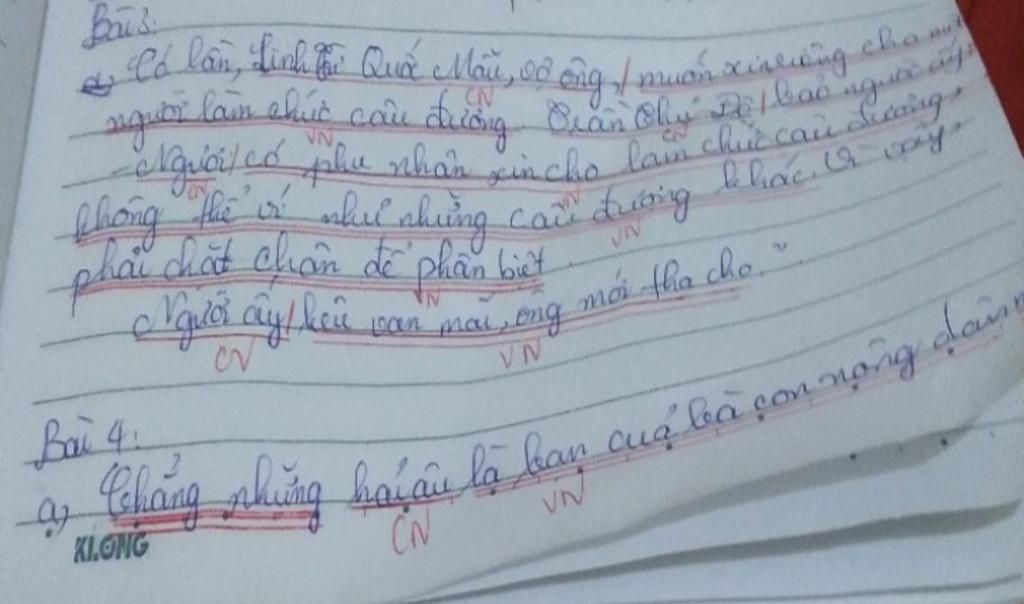 Bài 3:
Có lần, Linh Từ Quốc Mẫu, vợ ông, / muốn xin riêng cho một
CN
người làm chức câu đương. Trần Thủ Độ / bảo người ấy:
VN CN
- Người / có phu nhân xin cho làm chức câu đương,
CN VN
không thể ví như những câu đương khác. Vì vậy
VN
phải chặt chân để phân biệt.
VN
Người ấy / kêu van mãi, ông mới tha cho."
CN VN
Bài 4:
a, Chẳng những hải âu là bạn của bà con nông dân
CN VN
KLONG